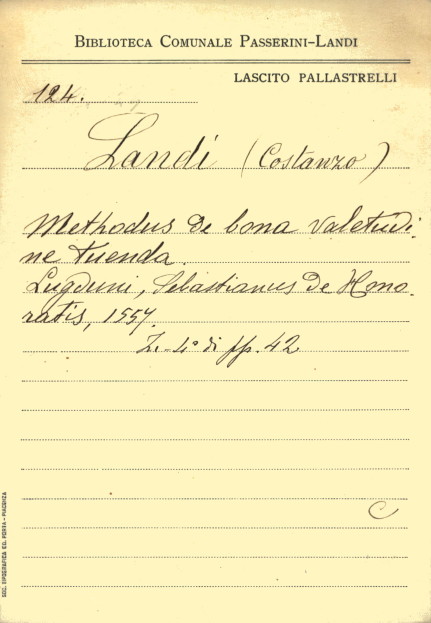 BIBLIOTECA COMUNALE PASSERINI-LANDI
LASCITO PALLASTRELLI
124.
Landi (Costanzo)
Methodus de bona valetudi-
ne tuenda.
Lugduni, Sebastianus de Hono-
ratis, 1557.
in-4° di pp. 42
C
SOC. TIPOGRAFICA ED. PORTA - PIACENZA